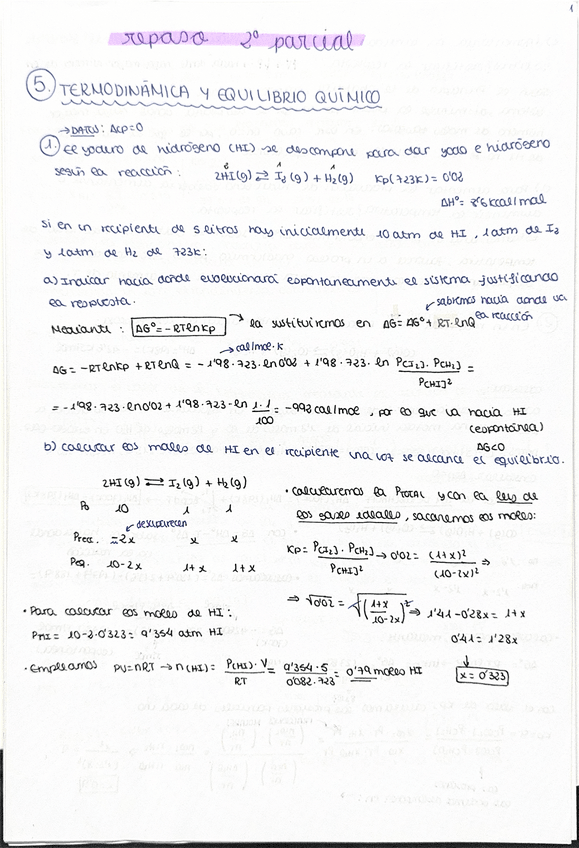 1
repaso 2º parcial
5. TERMODINÁMICA Y EQUILIBRIO QUÍMICO
→ DATO: ΔCp=0
1. El yoduro de hidrógeno (HI) se descompone para dar yodo e hidrógeno
según la reacción: 2HI(g) ⇄ I2(g) + H2(g) Kp(723K) = 0'02
ΔHº= 2'6 kcal/mol
Si en un recipiente de 5 litros hay inicialmente 10 atm de HI, 1 atm de I2
y 1 atm de H2 de 723K:
a) Indicar hacia donde evolucionará espontaneamente el sistema justificando
la respuesta.
sabremos hacia donde va la reacción
Mediante: ΔGº=-RTlnKp → la sustituiremos en ΔG=ΔGº+RT·lnQ
→ cal/mol·K
ΔG = -RTlnKp + RTlnQ = -1'98·723·ln0'02 + 1'98·723·ln P(I2)·P(H2)/P(HI)² =
= -1'98·723·ln0'02 + 1'98·723·ln 1·1/100 = -992 cal/mol, por lo que va hacia HI
(espontánea)
ΔG<0
b) calcular los moles de HI en el recipiente una vez se alcance el equilibrio.
2HI(g) ⇄ I2(g) + H2(g)
P0 10 1 1
desaparecen
Preac. -2x x x
Peq. 10-2x 1+x 1+x
· Calcularemos la PTOTAL y con la ley de
los gases ideales, sacaremos los moles:
Kp = P(I2)·P(H2)/P(HI)² → 0'02 = (1+x)²/(10-2x)² ⇒
⇒ √0'02 = √(1+x/10-2x)² ⇒ 1'41-0'28x = 1+x
0'41 = 1'28x
x = 0'323
· Para calcular los moles de HI:
PHI = 10-2·0'323 = 9'354 atm HI
· Empleamos PV=nRT → n(HI) = P(HI)·V/RT = 9'354·5/0'082·723 = 0'79 moles HI